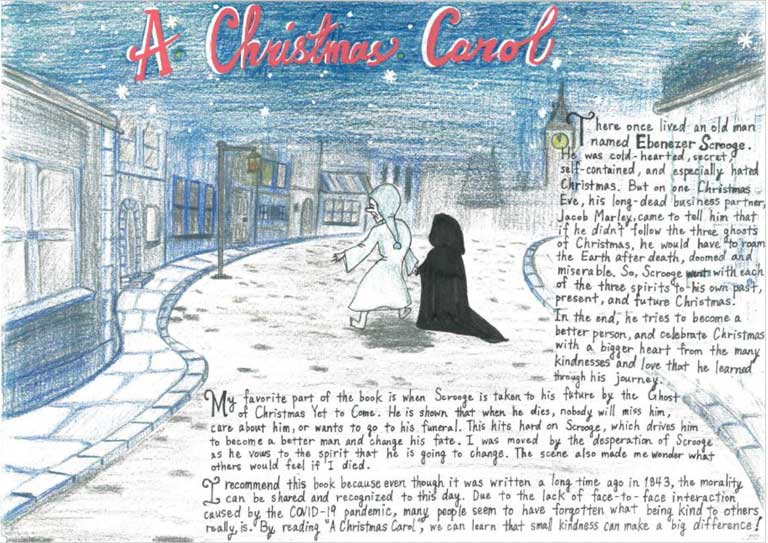 A Christmas Carol
There once lived an old man
named Ebenezer Scrooge.
He was cold-hearted, secret,
self-contained, and especially hated
Christmas. But on one Christmas
Eve, his long-dead business partner,
Jacob Marley, came to tell him that
if he didn't follow the three ghosts
of Christmas, he would have to roam
the Earth after death, doomed and
miserable. So, Scrooge went with each
of the three spirits to his own past,
present, and future Christmas.
In the end, he tries to become a
better person, and celebrate Christmas
with a bigger heart from the many
kindnesses and love that he learned
through his journey.
My favorite part of the book is when Scrooge is taken to his future by the Ghost
of Christmas Yet to Come. He is shown that when he dies, nobody will miss him,
care about him, or wants to go to his funeral. This hits hard on Scrooge, which drives him
to become a better man and change his fate. I was moved by the desperation of Scrooge
as he vows to the spirit that he is going to change. The scene also made me wonder what
others would feel if I died.
I recommend this book because even though it was written a long time ago in 1843, the morality
can be shared and recognized to this day. Due to the lack of face-to-face interaction
caused by the COVID-19 pandemic, many people seem to have forgotten what being kind to others
really is. By reading "A Christmas Carol", we can learn that small kindness can make a big difference!